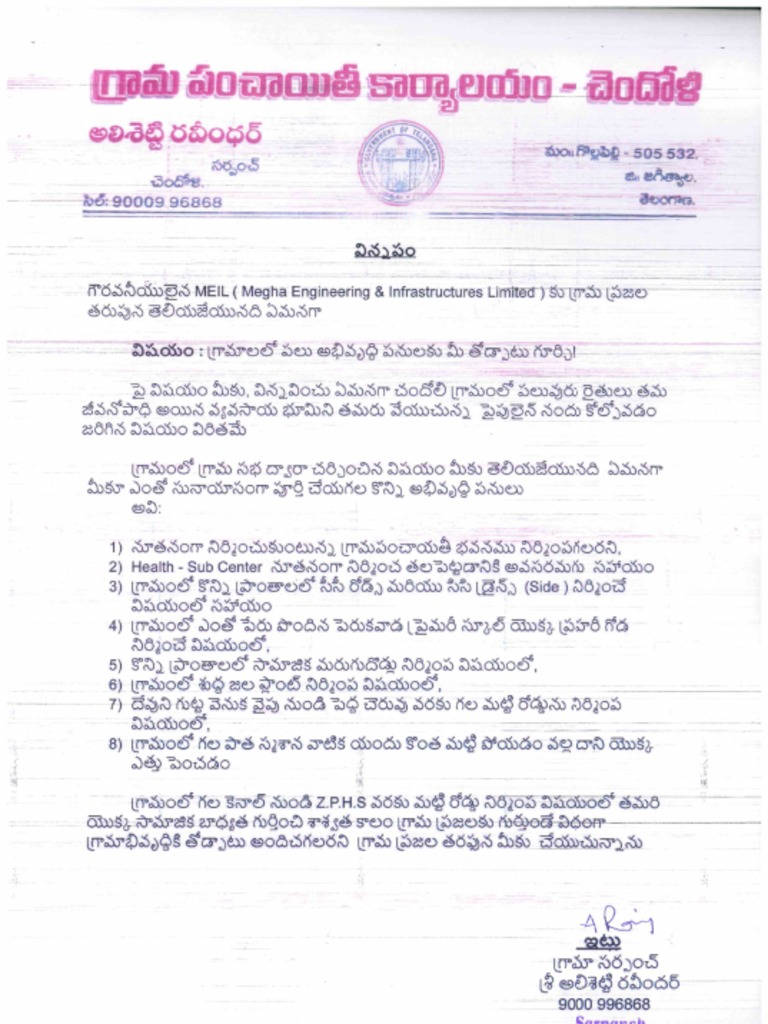 గ్రామ పంచాయితీ కార్యాలయం - చెందోళి
అలిశెట్టి రవీంధర్
సర్పంచ్
చెందోళి.
సెల్: 90009 96868
GOVERNMENT OF TELANGANA
మం॥గొల్లపెల్లి - 505 532.
జి॥ జగిత్యాల.
తెలంగాణ.
విన్నపం
గౌరవనీయులైన MEIL ( Megha Engineering & Infrastructures Limited ) కు గ్రామ ప్రజల
తరుపున తెలియజేయునది ఏమనగా
విషయం : గ్రామాలలో పలు అభివృద్ధి పనులకు మీ తోడ్పాటు గూర్చి!
పై విషయం మీకు, విన్నవించు ఏమనగా చందోలి గ్రామంలో పలువురు రైతులు తమ
జీవనోపాధి అయిన వ్యవసాయ భూమిని తమరు వేయుచున్న పైపులైన్ నందు కోల్పోవడం
జరిగిన విషయం విరితమే
గ్రామంలో గ్రామ సభ ద్వారా చర్చించిన విషయం మీకు తెలియజేయునది ఏమనగా
మీకూ ఎంతో సునాయాసంగా పూర్తి చేయగల కొన్ని అభివృద్ధి పనులు
అవి:
1) నూతనంగా నిర్మించుకుంటున్న గ్రామపంచాయతీ భవనము నిర్మింపగలరని,
2) Health - Sub Center నూతనంగా నిర్మించ తలపెట్టడానికి అవసరమగు సహాయం
3) గ్రామంలో కొన్ని ప్రాంతాలలో సీసీ రోడ్స్ మరియు సిసి డ్రైన్స్ (Side ) నిర్మించే
విషయంలో సహాయం
4) గ్రామంలో ఎంతో పేరు పొందిన పెరుకవాడ ప్రైమరీ స్కూల్ యొక్క ప్రహరీ గోడ
నిర్మించే విషయంలో,
5) కొన్ని ప్రాంతాలలో సామాజిక మరుగుదొడ్లు నిర్మింప విషయంలో,
6) గ్రామంలో శుద్ధ జల ప్లాంట్ నిర్మింప విషయంలో,
7) దేవుని గుట్ట వెనుక వైపు నుండి పెద్ద చెరువు వరకు గల మట్టి రోడ్డును నిర్మింప
విషయంలో,
8) గ్రామంలో గల పాత స్మశాన వాటిక యందు కొంత మట్టి పోయడం వల్ల దాని యొక్క
ఎత్తు పెంచడం
గ్రామంలో గల కెనాల్ నుండి Z.P.H.S వరకు మట్టి రోడ్డు నిర్మింప విషయంలో తమరి
యొక్క సామాజిక బాధ్యత గుర్తించి శాశ్వత కాలం గ్రామ ప్రజలకు గుర్తుండే విధంగా
గ్రామాభివృద్ధికి తోడ్పాటు అందిచగలరని గ్రామ ప్రజల తరపున మీకు చేయుచున్నాను
ఇట్లు
గ్రామా సర్పంచ్
శ్రీ అలిశెట్టి రవీందర్
9000 996868
Sarpanch